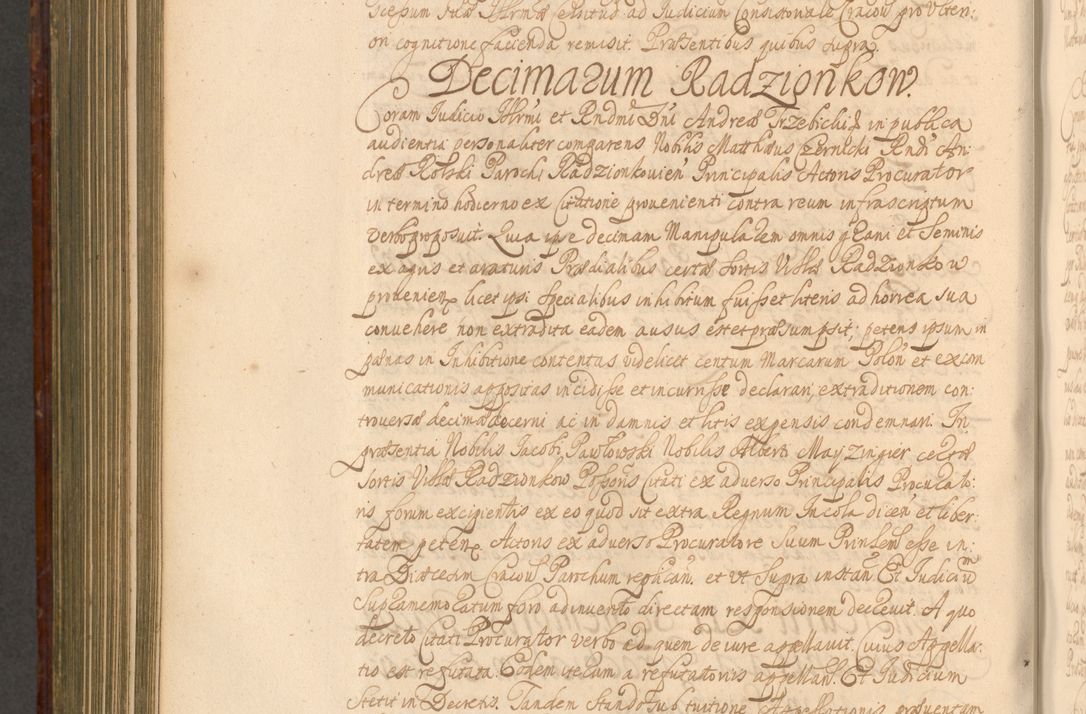 on cognitione facienda remisit. Præsentibus quibus supra.
Decimarum Radzionkow.
Coram Judicio Illmi et Rndmi Dni Andreæ Trzebicki in publica
audientia personaliter comparens Nobilis Matthæus Czernicki Rndi An:
dreæ Rolski Parochi Radzionkovien Principalis Actoris Procurator
in termino hodierno ex Citatione provenienti contra reum infrascriptum
verbo proposuit. Quia ipse decimam Manipulalem omnis grani et Seminis
ex agris et araturis Prædialibus certæ sortis Villæ Radzionkow
provenien licet ipsi specialibus inhibitum fuisset literis ad horrea sua
convehere non extradita eadem ausus est et præsumpsit; petens ipsum in
pænas in Inhibitione contentas videlicet centum Marcarum Polon et excom
municationis appositas incidisse et incurrisse declarari, extraditionem con:
troversæ decimæ decerni ac in damnis et litis expensis condemnari. In
præsentia Nobilis Jacobi Pawlowski Nobilis Alberti Mayzingier certæ
sortis Villæ Radzionkow Possoris Citati ex adverso Principalis Procurato:
ris forum excipientis ex eo quod sit extra Regnum Incola dicen et liber
tatem peten. Actoris ex adverso Procuratore suum Prinlem esse in:
tra Diæcesim Cracov Parochum replican. et ut supra instan. Et Judicium
Supramemoratum foro adinvento directam responsionem decrevit. A quo
decreto Citati Procurator verbo ad quem de iure appellavit. Cuius Appella:
tio est refutata. Eodem iterum a refutatoriis appellan. Et Judicium
stetit in Decretis. Tandem stando sub tuitione Appellationis præventam